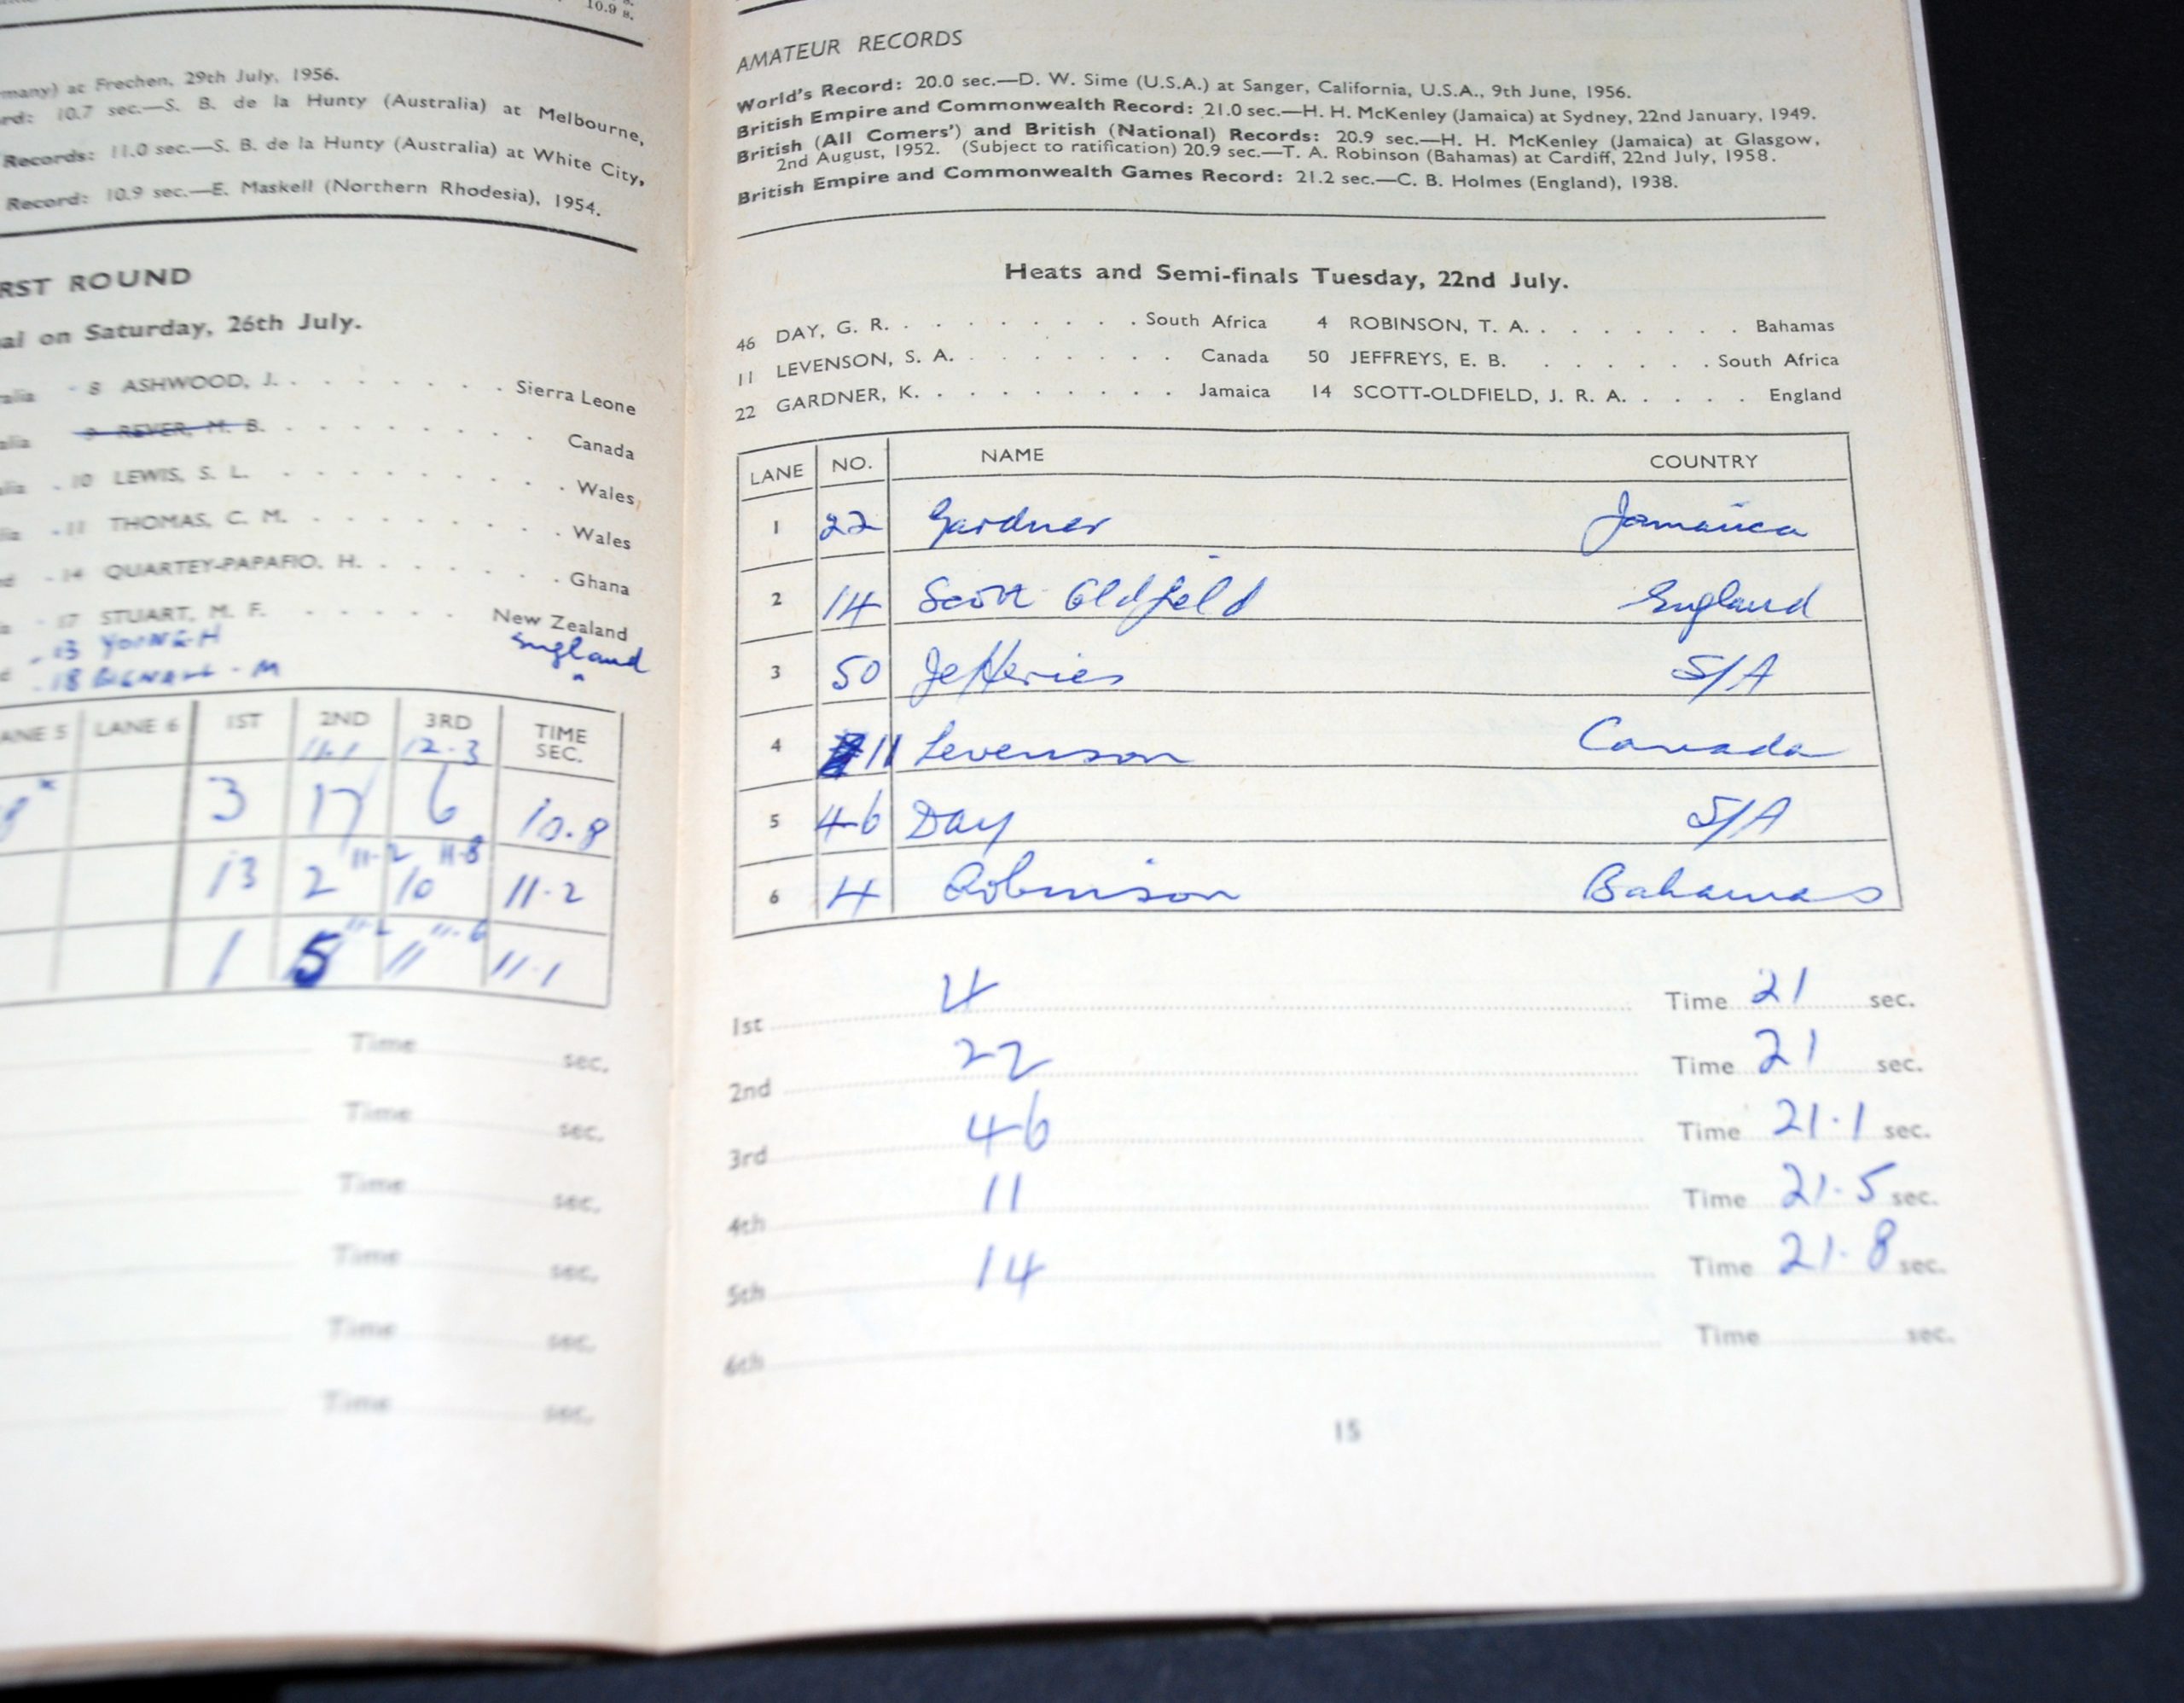 10.9 s.
many) at Frechen, 29th July, 1956.
rd: 10.7 sec.—S. B. de la Hunty (Australia) at Melbourne,
Records: 11.0 sec.—S. B. de la Hunty (Australia) at White City,
Record: 10.9 sec.—E. Maskell (Northern Rhodesia), 1954.
RST ROUND
al on Saturday, 26th July.
alia - 8 ASHWOOD, J. . . . . . . . Sierra Leone
alia 9 REVER, M. B. . . . . . . . . Canada
alia - 10 LEWIS, S. L. . . . . . . . . Wales
- 11 THOMAS, C. M. . . . . . . . Wales
- 14 QUARTEY-PAPAFIO, H. . . . . . . Ghana
- 17 STUART, M. F. . . . . . New Zealand
- 13 YOUNG-H England
- 18 - M
ANE 5 LANE 6 1ST 2ND 3RD TIME SEC.
11.1 12.3
8* 3 17 6 10.8
11-2 11-8
13 2 10 11-2
11-2 11-6
1 5 11 11-1
Time sec.
Time sec.
Time sec.
Time sec.
Time sec.
Time sec.
AMATEUR RECORDS
World's Record: 20.0 sec.—D. W. Sime (U.S.A.) at Sanger, California, U.S.A., 9th June, 1956.
British Empire and Commonwealth Record: 21.0 sec.—H. H. McKenley (Jamaica) at Sydney, 22nd January, 1949.
British (All Comers') and British (National) Records: 20.9 sec.—H. H. McKenley (Jamaica) at Glasgow,
2nd August, 1952. (Subject to ratification) 20.9 sec.—T. A. Robinson (Bahamas) at Cardiff, 22nd July, 1958.
British Empire and Commonwealth Games Record: 21.2 sec.—C. B. Holmes (England), 1938.
Heats and Semi-finals Tuesday, 22nd July.
46 DAY, G. R. . . . . . . . . South Africa 4 ROBINSON, T. A. . . . . . . . Bahamas
11 LEVENSON, S. A. . . . . . . . Canada 50 JEFFREYS, E. B. . . . . . . South Africa
22 GARDNER, K. . . . . . . . . Jamaica 14 SCOTT-OLDFIELD, J. R. A. . . . . England
LANE NO. NAME COUNTRY
1 22 Gardner Jamaica
2 14 Scott Oldfield England
3 50 Jefferies S/A
4 11 Levenson Canada
5 46 Day S/A
6 4 Robinson Bahamas
1st 4 Time 21 sec.
2nd 22 Time 21 sec.
3rd 46 Time 21.1 sec.
4th 11 Time 21.5 sec.
5th 14 Time 21.8 sec.
6th Time sec.
15